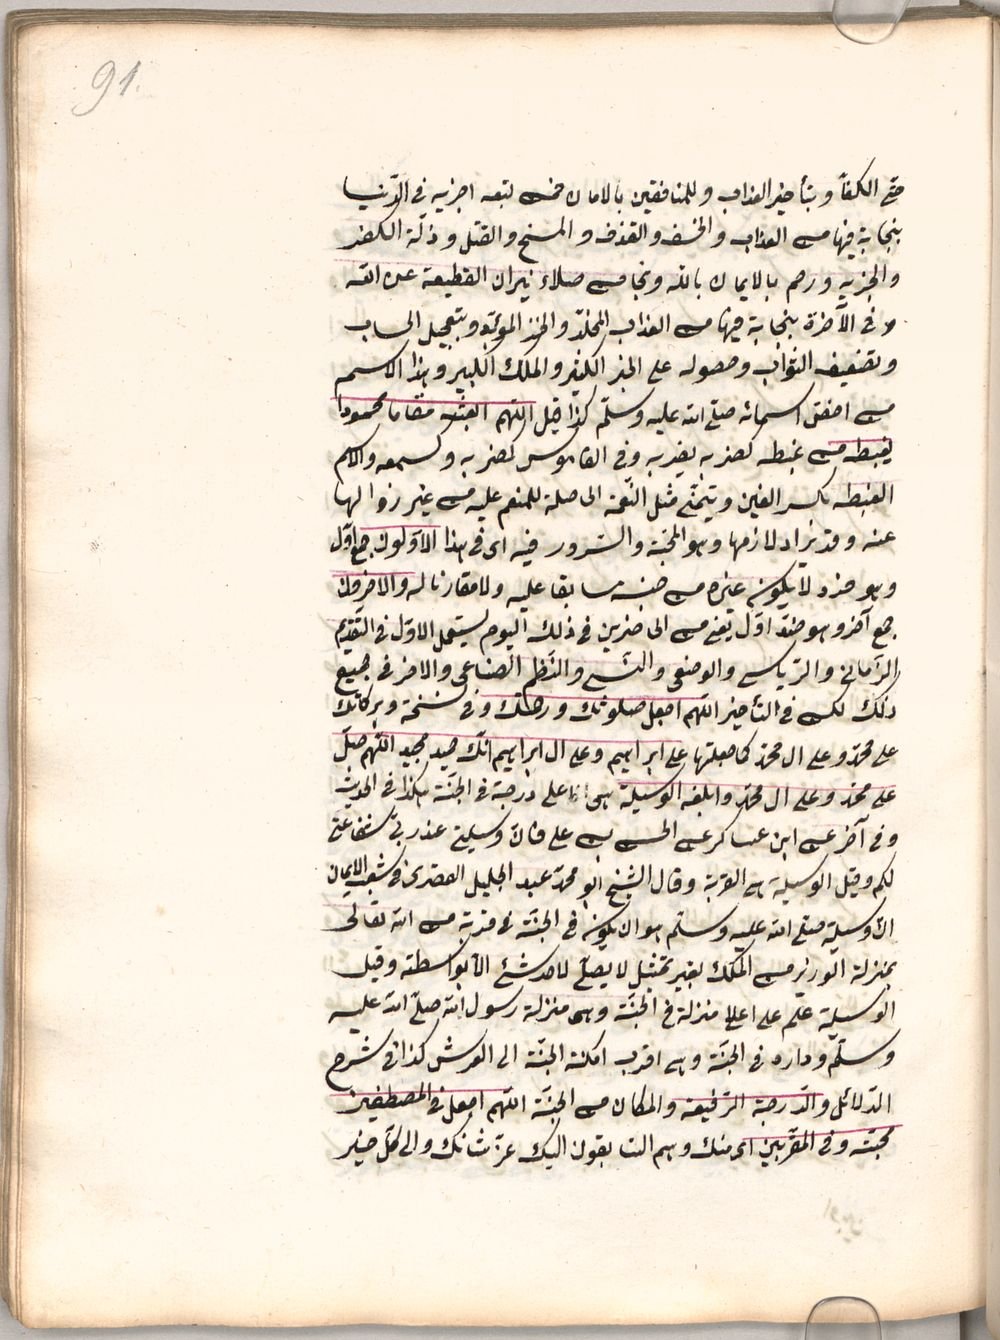 91.
حتى الكفار وبتأخير العذاب وللمنافقين بالامان فمن لتبعه اجزيه في الدّنيا
بنجاته فيها من العذاب والخسف والقذف والمسخ والقتل وذلّة الكفر
والجزيه ورحم بالايمان بالله ونجا من صلاء نيران القطيعة عن الله
و في الآخرة بنجاته فيها من العذاب المخلّد والخزي المؤبّد وبتعجيل الحساب
وتضعيف الثواب وحصوله على الخير الكثير والملك الكبير وهذا الاسم
من اخصّ اسمائه صلى الله عليه وسلّم كذا قيل اللّهم ابعثه مقاما محمودا
يغبطه من غبطه كضربه يضربه وفي القاموس كضربه وسمعه والاسم
الغبطه بكسر الغين ويتمنّى مثل النّعمة الحاصلة للمنعم عليه من غير زوالها
عنه وقد يراد لازمها وهو المحبّة والسّرور فيه اى في هذا الاوّلون جمع اوّل
وهو فرد لا يكون غيره من جنسه سابقا عليه ولا مقارنا له والآخرون
جمع آخر وهو ضدّ اوّل يعني من الحاضرين في ذلك اليوم يستعمل الاوّل في التّقديم
الزّماني والرّياسي والوضعي والنسبي والنّظم الصناعي والآخر في جميع
ذلك لكن في التأخير اللّهم اجعل صلوتك ورحمتك وفي نسخة وبركاتك
على محمّد وعلى ال محمّد كما جعلتها على ابراهيم وعلى ال ابراهيم انّك حميد مجيد اللّهم صلّ
على محمّد وعلى ال محمّد وابلغه الوسيلة هي اعلى درجة في الجنّة هكذا في الحديث
وفي آخر عن ابن عساكر عن الحسن بن علي فانّ وسيلتي عند ربّي شفاعتي
لكم وقيل الوسيلة هي القربة وقال الشيخ ابو محمّد عبد الجليل القصرى في شعب الايمان
انّ وسيلته صلى الله عليه وسلّم هو ان يكون في الجنّة في قربه من الله تعالى
بمنزلة الوزير من الملك بغير تمثيل لا يصلّ لاحد شئ الّا بواسطته وقيل
الوسيلة علم على اعلا منزلة في الجنّة وهي منزلة رسول الله صلّى الله عليه
وسلّم وداره في الجنّة وهي اقرب امكنة الجنّة الى العرش كذا في شرح
الدّلائل والدّرجة الرّفيعة والمكان من الجنّة اللّهم اجعل في المصطفين
محبّته وفي المقرّبين اى منك وهم السابقون اليك عزّ شانك والى كلّ خير